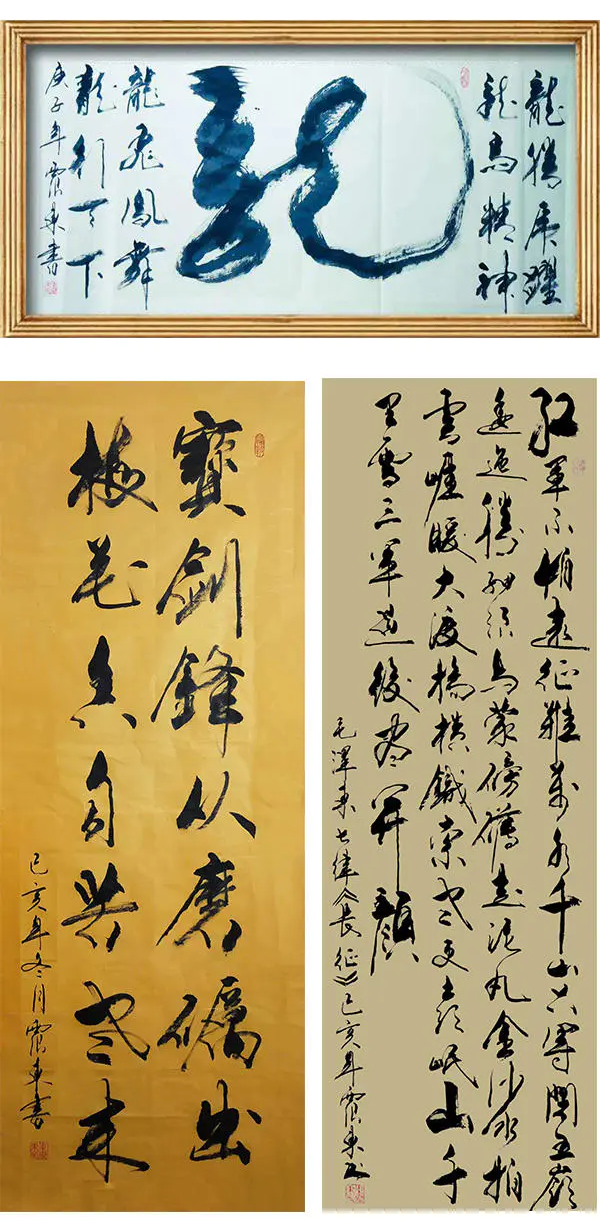 龍腾虎躍
龍馬精神
龍
龍飛鳳舞
龍行天下
庚子年震東書
寶劍鋒从磨礪出
梅花香自苦寒来
己亥年冬月震東書
红軍不怕遠征難萬水千山只等閑五嶺
逶迤騰細浪烏蒙磅礴走泥丸金沙水拍
雲崖暖大渡橋横鐵索寒更喜岷山千
里雪三軍過後盡开顏
毛澤東七律《長征》己亥年震東书